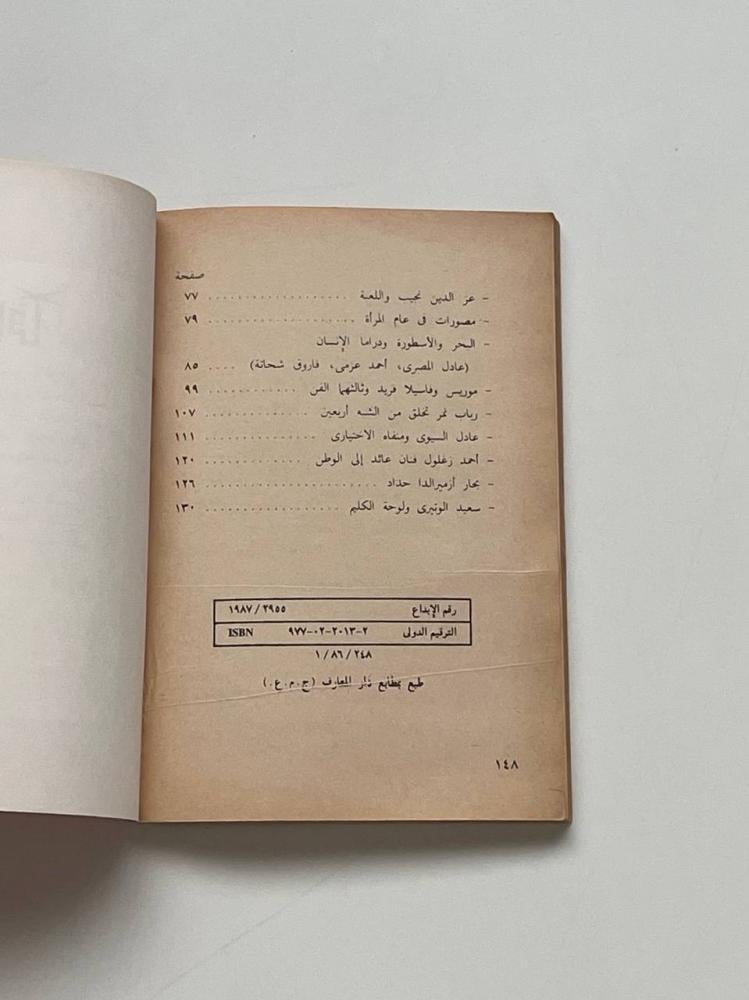 صفحة
- عز الدين نجيب واللعبة .................. ٧٧
- مصورات فى عام المرأة .................. ٧٩
- البحر والأسطورة ودراما الإنسان
(عادل المصرى، أحمد عزمى، فاروق شحاتة) .... ٨٥
- موريس وفاسيلا فريد وثالثهما الفن ............ ٩٩
- رباب نمر تخلق من الشبه أربعين .............. ١٠٧
- عادل السيوى ومنفاه الاختيارى .............. ١١١
- أحمد زغلول فنان عائد إلى الوطن ............. ١٢٠
- بحار أزميرالدا حداد ..................... ١٢٦
- سعيد الوتيرى ولوحة الكليم ................. ١٣٠
رقم الإيداع ١٩٨٧/٢٩٥٥
الترقيم الدولى ٩٧٧-٠٢-٢٠١٣-٢ ISBN
١/٨٦/٢٤٨
طبع بمطابع دار المعارف (ج.م.ع.)
١٤٨